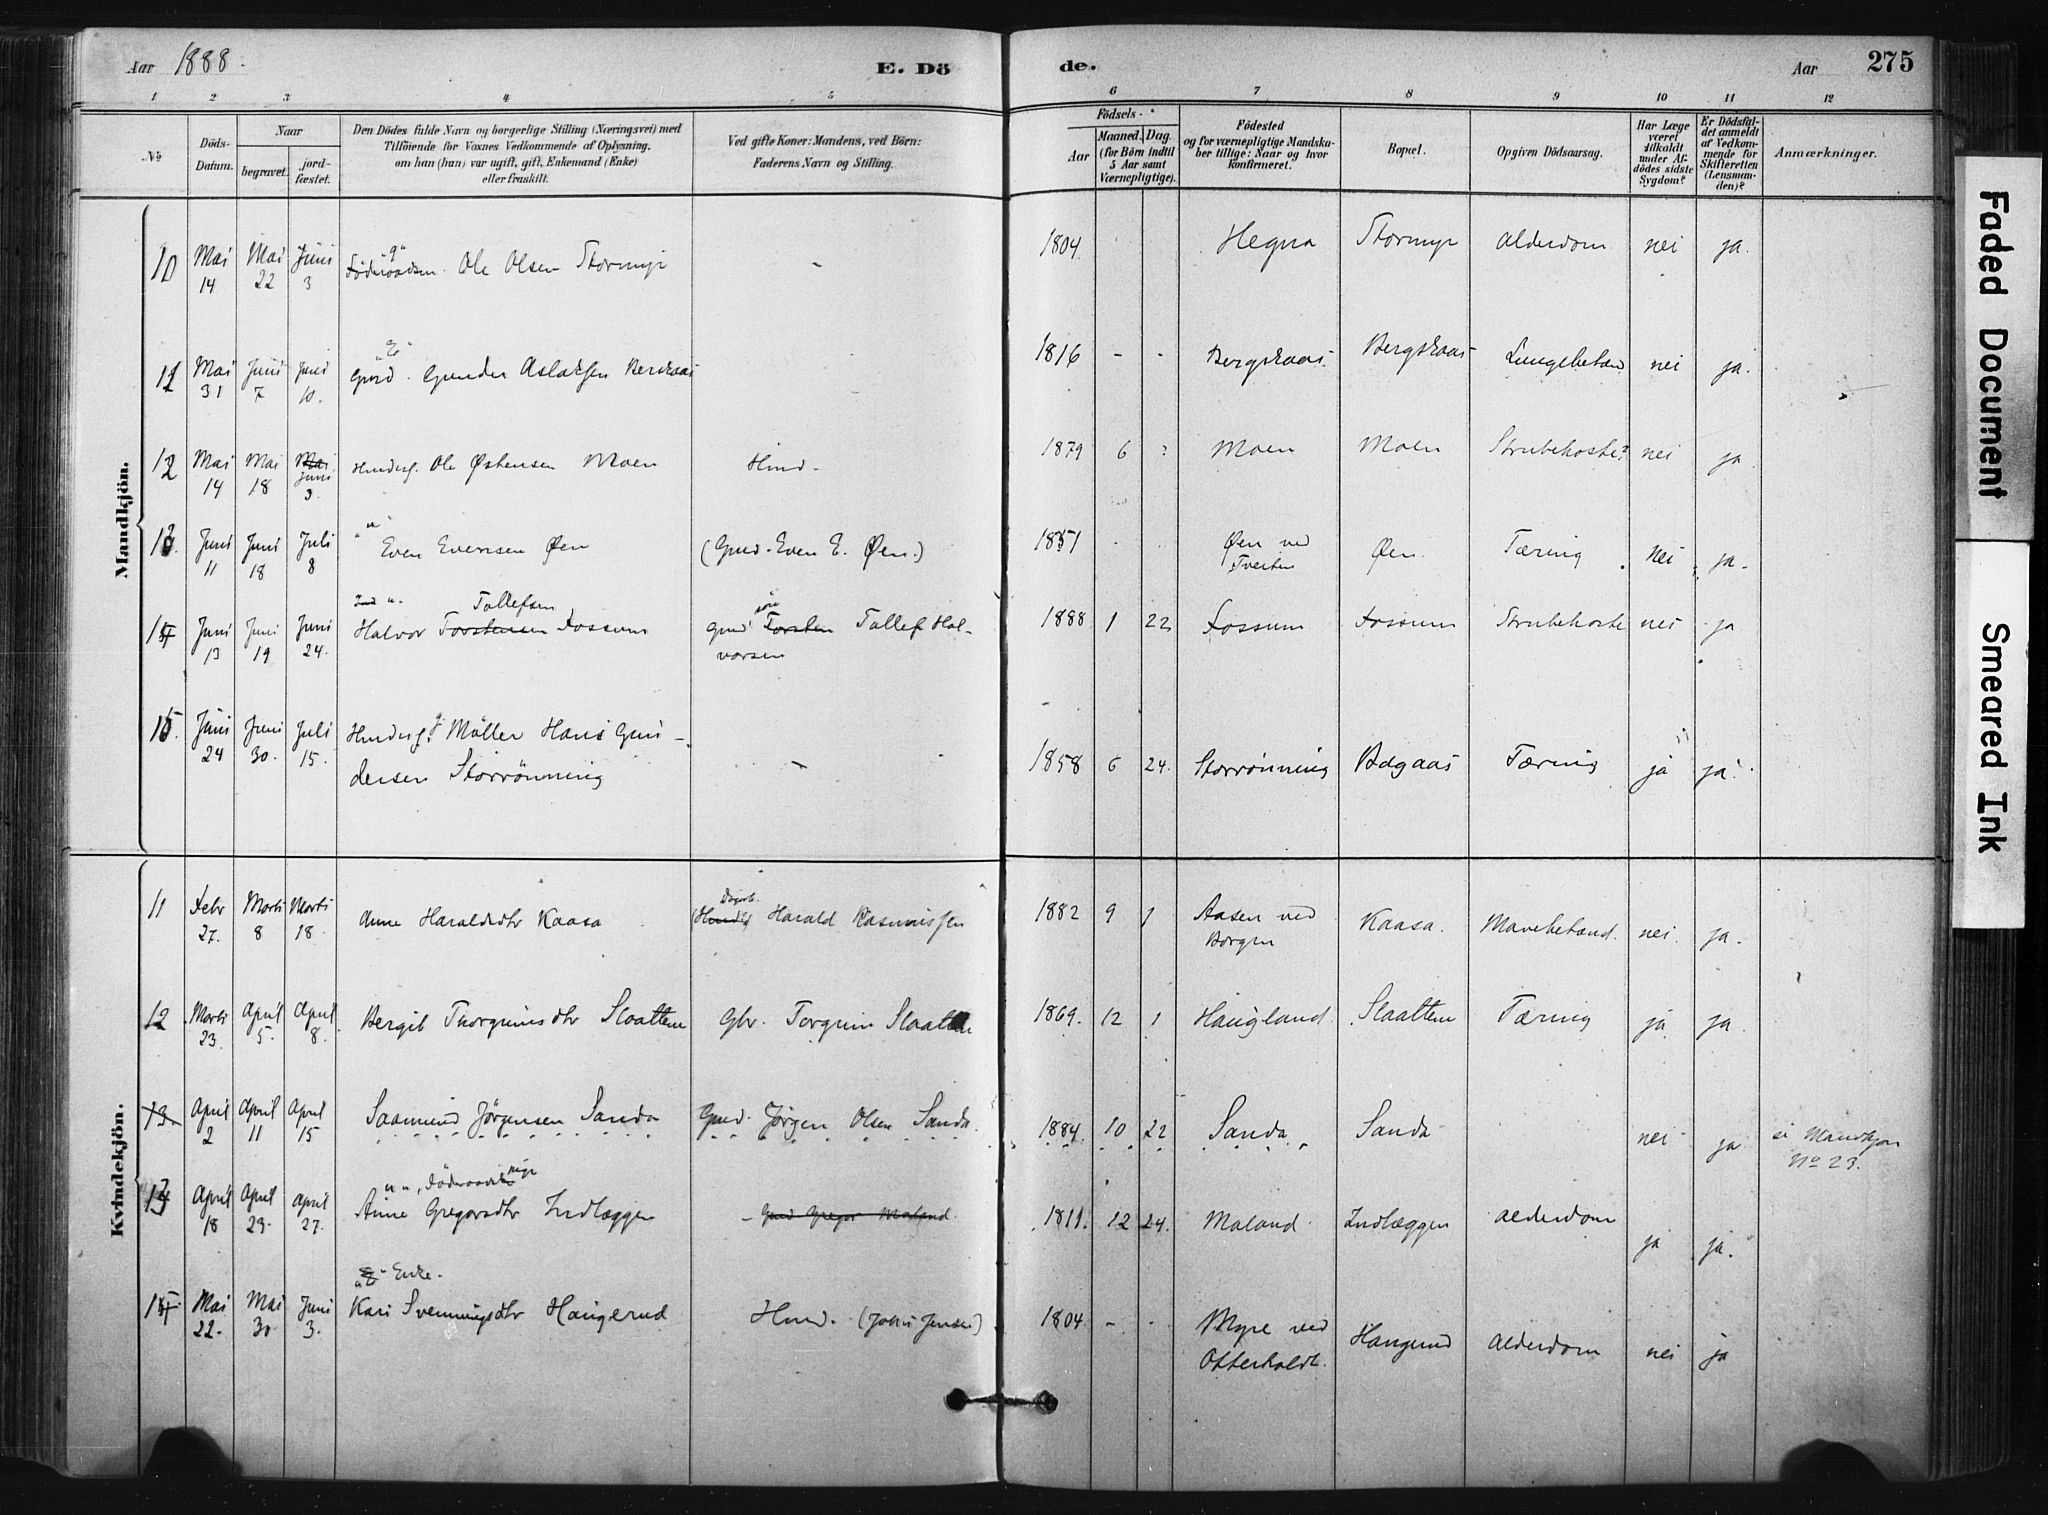 Aar 1888.
E. Dö
de.
Aar
275
1 2 3 4 5 6 7 8 9 10 11 12
No
Döds-Datum.
Naar
begravet.
jord-fæstet.
Den Dödes fulde Navn og borgerlige Stilling (Næringsvei) med
Tilföiende for Voxnes Vedkommende af Oplysning,
om han (hun) var ugift, gift, Enkemand (Enke)
eller fraskilt.
Ved gifte Koner: Mandens, ved Börn:
Faderens Navn og Stilling.
Födsels-
Aar
Maaned.
Dag.
(for Börn indtil
5 Aar samt
Værnepligtige).
Födested
og for værnepligtige Mandska-
ber tillige: Naar og hvor
konfirmeret.
Bopæl.
Opgiven Dödsaarsag.
Har Læge
været
tilkaldt
under Af-
dödes sidste
Sygdom?
Er Dödsfal-
det anmeldt
af Vedkom-
mende for
Skifteretten
(Lensman-
den)?
Anmærkninger.
Mandkjön.
10 Mai 14 Mai 22 Juni 3 "g" Föderaadsm. Ole Olsen Stormyr - 1804 Hegna Stormyr Alderdom nei ja.
11 Mai 31 Juni 7 Juni 10. "E" Gmd. Gunder Aslaksen Berskaas - 1816 - - Bergskaas. Bergskaas Lungebetæn nei ja.
12 Mai 14 Mai 18 Mai Juni 3. Ole Østensen Moen Hmd. 1879 6 ? Moen Moen Strubehoste? nei ja
13. Juni 11 Juni 18 Juli 8 "u" Even Evensen Øen (Gmd. Even E. Øen.) 1851 Øen ved Tveiten Øen. Tæring nei ja.
14 Juni 13 Juni 19 Juni 24. Halvor Torstensen Tollefsen Fossum Gmd Torsten Tollef Hal-
vorsen 1888 1 22 Fossum Fossum Strubehoste nei ja
15. Juni 24 Juni 30. Juli 15. Möller Hans Gun-
dersen Storrönning - 1858 6 24. Storrönning Bagaas Tæring ja ja.
Kvindekjön.
11 Febr 27. Marts 8 Marts 18. Anne Haraldsdtr Kaasa Harald Rasmussen 1882 9 1 Aasen ved Borgen Kaasa. Mavebetænd. nei. ja.
12 Marts 23. April 5. April 8. Bergit Thorgrimsdtr Slaatten Gbr. Torgrim Slaatten 1869. 12 1 Haugland. Slaatten Tæring ja ja.
13 April 2 April 11 April 15 Saamund Jörgensen Sanda Gmd. Jörgen Olsen Sanda. 1884. 10 22 Sanda Sanda nei ja se Mandkjøn
No 23.
13 April 18 April 23. April 27. "u", Föderaads Anne Gregarsdtr Indlæggen - Gmd Gregar Maland. 1811. 12 24. Maland. Indlæggen Alderdom ja ja.
14 Mai 22. Mai 30 Juni 3. Enke. Kari Svenningsdtr Haugerud Hmd. (John Jensen) 1804 - Myre ved Otterholdt. Haugerud Alderdom nei ja
Faded Document
Smeared Ink